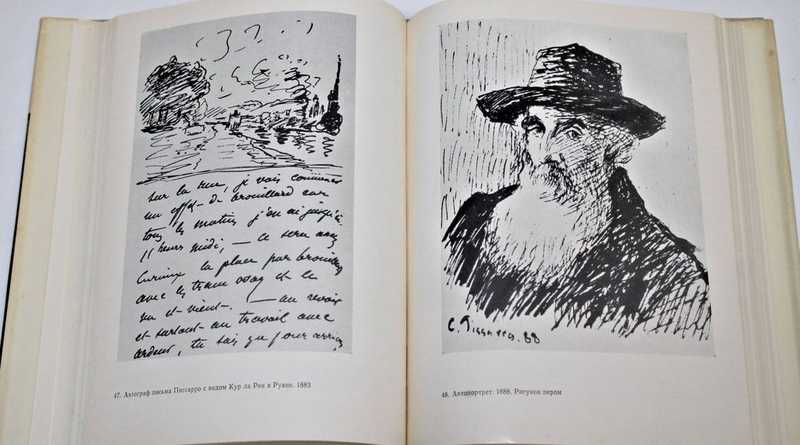 sur la rue, je vais commencer
un effet de brouillard car
tous les matins j'en ai jusqu'à
11 heures midi, — ce sera assez
curieux la place par brouillard
avec les tramways et le
va et vient. — au revoir
et surtout au travail avec
ardeur, tu sais que pour arriver
47. Автограф письма Писсарро с видом Кур ла Рен в Руане. 1883
C. Pissarro. 88
48. Автопортрет. 1888. Рисунок пером